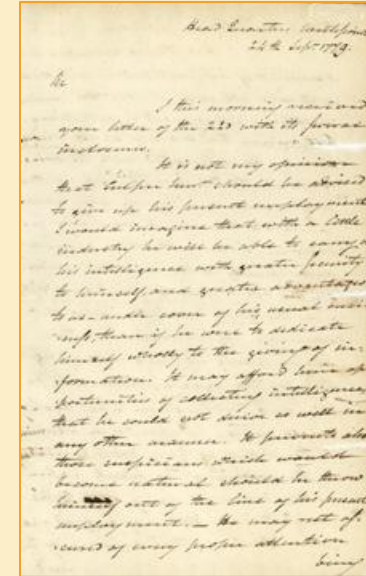 Head Quarters Westpoint
24th Sept. 1779.
Sir
I this morning received
your letter of the 22d with its several
inclosures.
It is not my opinion
that Culper junr. should be advised
to give up his present employment
I would imagine that with a little
industry he will be able to carry on
his intelligence with greater security
to himself and greater advantages
to us - under cover of his usual busi
ness, than if he were to dedicate
himself wholly to the giving of in-
formation. It may afford him op
portunities of collecting intelligence,
that he could not derive so well in
any other manner. It prevents also
those suspicions which would
become natural should he throw
himself out of the line of his present
employment. — He may rest as-
sured of every proper attention
being